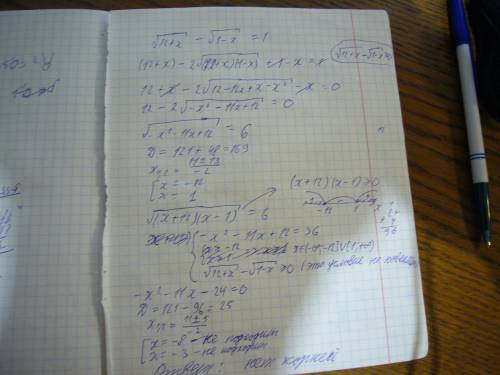 √12+x - √1-x = 1
(12+x) - 2√(12+x)(1-x) + 1-x = 1
√12+x - √1-x ≥0
12+x - 2√12-12x+x-x² - x = 0
12 - 2√-x²-11x+12 = 0
√-x²-11x+12 = 6
D = 121 + 48 = 169
x₁,₂ = 11±13 / -2
[x = -12
x = 1
(x+12)(x-1)≥0
-12 1
√(x+12)(x-1) = 6
{-x² - 11x + 12 = 36
x∈(-∞,-12]∪[1,+∞)
√12+x - √1-x ≥0 (это условие не
24
4
96
-x² - 11x - 24 = 0
D = 121 - 96 = 25
x₁,₂ = 11±5 / -2
[x = -8 - не подходит
x = -3 - не подходит
Ответ: нет корней